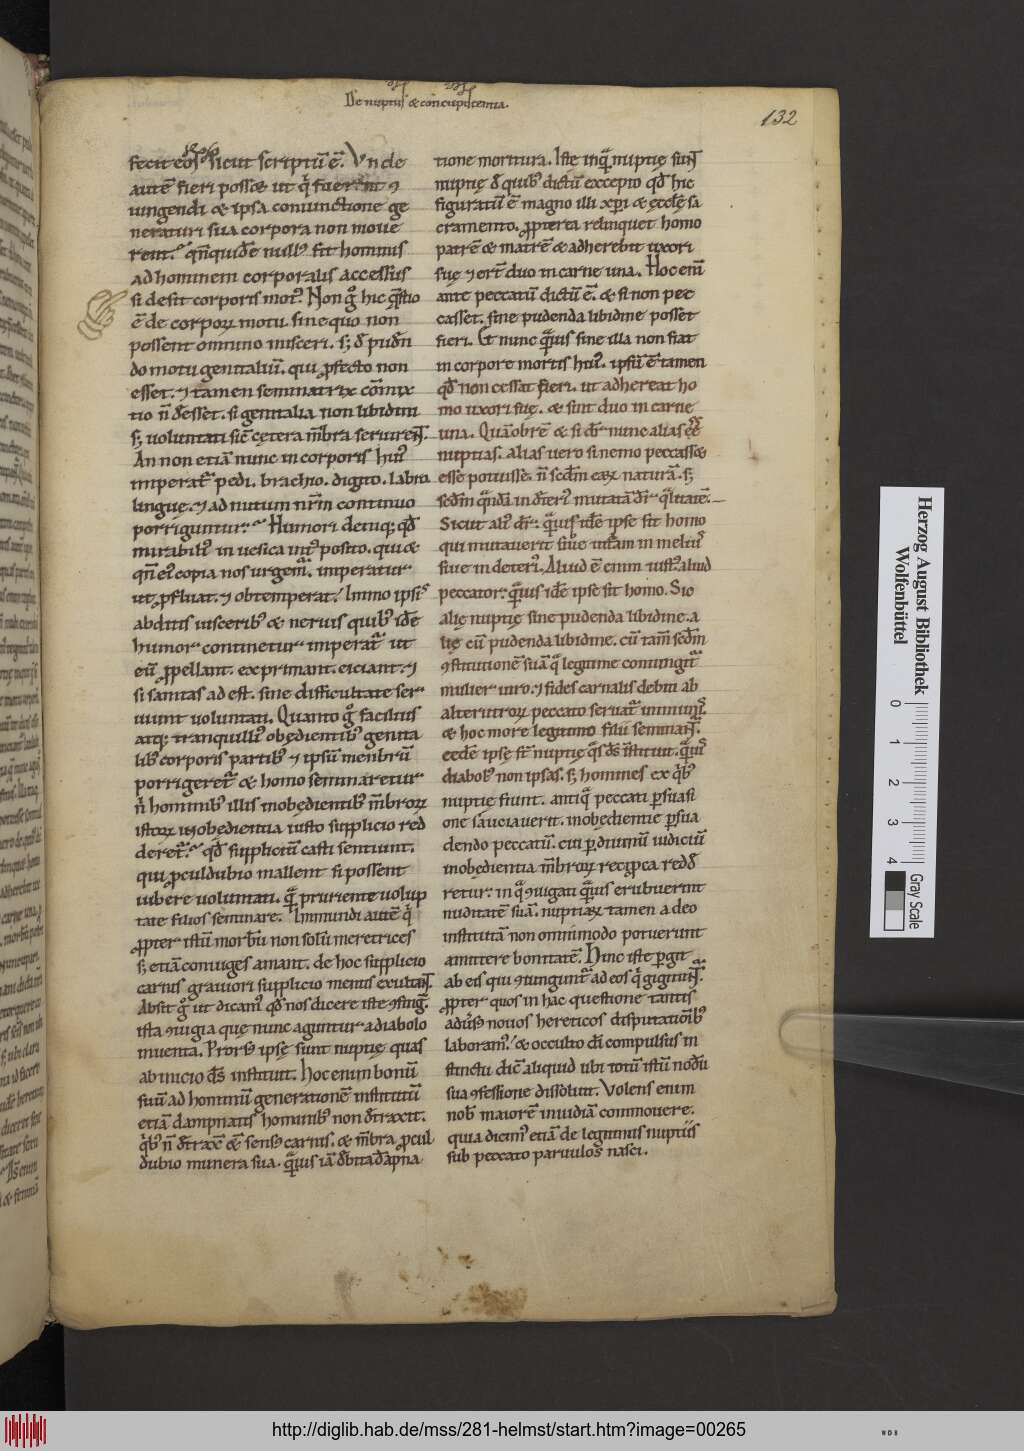 De nuptiis & concupiscentia.
132
fecit eos. sicut scriptū ē. Unde
autē fieri posset ut q̇ fuerunt ꝯ
iungendi & ipsa coniunctione ge
neraturi sua corpora non moue
rent. qn̄ quidē null᷒ fit hominis
ad hominem corporalis accessus
si desit corporis mot᷒. Non g̊ hic q̄stio
ē de corporꝝ motu sine quo non
possent omnino misceri. s; đ pudn̄
do motu genitaliū. qui ꝓfecto non
esset. ⁊ tamen seminatrix cōmix
tio ñ đesset. si genitalia non libidini
s; voluntati sic̄ cętera m̄bra seruirent.
An non etiā nunc in corporis hui᷒
imperat̄ pedi. brachio. digito. labio
linguę. ⁊ ad nutum nr̄m continuo
porriguntur. Humori deniq; qđ
mirabili᷒ in uesica int᷒ posito. qui &
qn̄ ei᷒ copia nos urgem̄. imperatur
ut ꝓfluat. ⁊ obtemperat. Immo ipsis
abditis uiscerib᷒ & neruis quib᷒ idē
humor continetur imperat̄ ut
eū ꝓpellant. exprimant. eiciant. ⁊
si sanitas adest. sine difficultate ser
uiunt voluntati. Quanto g̊ facilius
atq; tranquilli᷒ obędientib᷒ genita
lib᷒ corporis partib᷒ ⁊ ipsū menbrū
porrigeret̄ & homo seminaretur
ñ hominib᷒ illis inobędientib᷒ m̄brorꝝ
istorꝝ inobędientia iusto supplicio red
deret̄. qđ suppliciū casti sentiunt.
qui ꝓculdubio mallent si possent
iubere voluntati. quā pruriente volup
tate filios seminare. Immundi autē q̇
ꝓpter istū morbū non solū meretrices
s; etiā coniuges amant. de hoc supplicio
carnis grauiori supplicio mentis exultant.
Absit g̊ ut dicam᷒ qđ nos dicere iste ꝯfingit.
ista ꝯiugia quę nunc aguntur a diabolo
inuenta. Prors᷒ ipsę sunt nuptię quas
ab inicio đs instituit. Hoc enim bonū
suū ad hominū generationē institutū
etiā dampnatis hominib᷒ non đtraxit.
qib᷒ ñ đtraxit & sens᷒ carnis. & m̄bra ꝓcul
dubio munera sua. quāuis iā đbita dāpna
tione moritura. Iste inquā nuptię sunt
nuptię đ quib᷒ dictū excepto qđ hic
figuratū ē magno illi xp̄i & ęcclę sa
cramento. ꝓpterea relinquet homo
patrē & matrē & adherebit uxori
suę ⁊ er̄t duo in carne una. Hoc enī
ante peccatū dictū ē. & si non pec
casset. sine pudenda libidine posset
fieri. Et nunc quāuis sine illa non fiat
in corpore mortis hui᷒. ipsū ē tamen
qđ non cessat fieri. ut adhereat ho
mo uxori suę. & sint duo in carne
una. Quāobrē & si dr̄ nunc alias eē
nuptias. alias uero si nemo peccasset
esse potuisse. ñ scđm earꝝ naturā. s;
scđm quādā in đteri᷒ mutatā dr̄ qualitatē.
Sicut ali᷒ dr̄. quāuis idē ipse sit homo
qui mutauerit siue uitam in meli᷒
siue in deteri᷒. Aliud ē enim iust᷒. aliud
peccator. quāuis idē ipse sit homo. Sic
alię nuptię sine pudenda libidine. a
lię cū pudenda libidine. cū tam̄ scđm
ꝯstitutionē suā quā legitime coniungit̄
mulier uiro. ⁊ fides carnalis debiti ab
alterutrorꝝ peccato seruat̄ inmunis.
& hoc more legitimo filii seminant̄.
eędē ipsę st̄ nuptię quas đs instituit. quāuis
diabol᷒ non ipsas. s; homines ex qib᷒
nuptię fiunt. antiqua peccati ꝑsuasi
one sauciauerit. inobędientię ꝑsua
dendo peccatū. cui ꝑ diuinū iudiciū
inobedientia m̄brorꝝ reciproca redđ
retur. in qua ꝯiugati quāuis erubuerint
nuditatē suā. nuptiarꝝ tamen a deo
institutā non omnimodo potuerunt
amittere bonitatē. Hinc iste ꝑgit
ab eis qui ꝯiungunt̄ ad eos q̇ gignunt̄.
ꝓpter quos in hac questione tantis
adūs᷒ nouos hereticos disputationib᷒
laboram᷒. & occulto dī compulsus in
stinctu dic̄ aliquid ubi totū istū nodū
sua ꝯfessione dissoluit. Volens enim
nob᷒ maiorē inuidiā commouere.
quia dicim᷒ etiā de legitimis nuptiis
sub peccato paruulos nasci.
Herzog August Bibliothek
Wolfenbüttel
0 1 2 3 4
Gray Scale
http://diglib.hab.de/mss/281-helmst/start.htm?image=00265
WDB